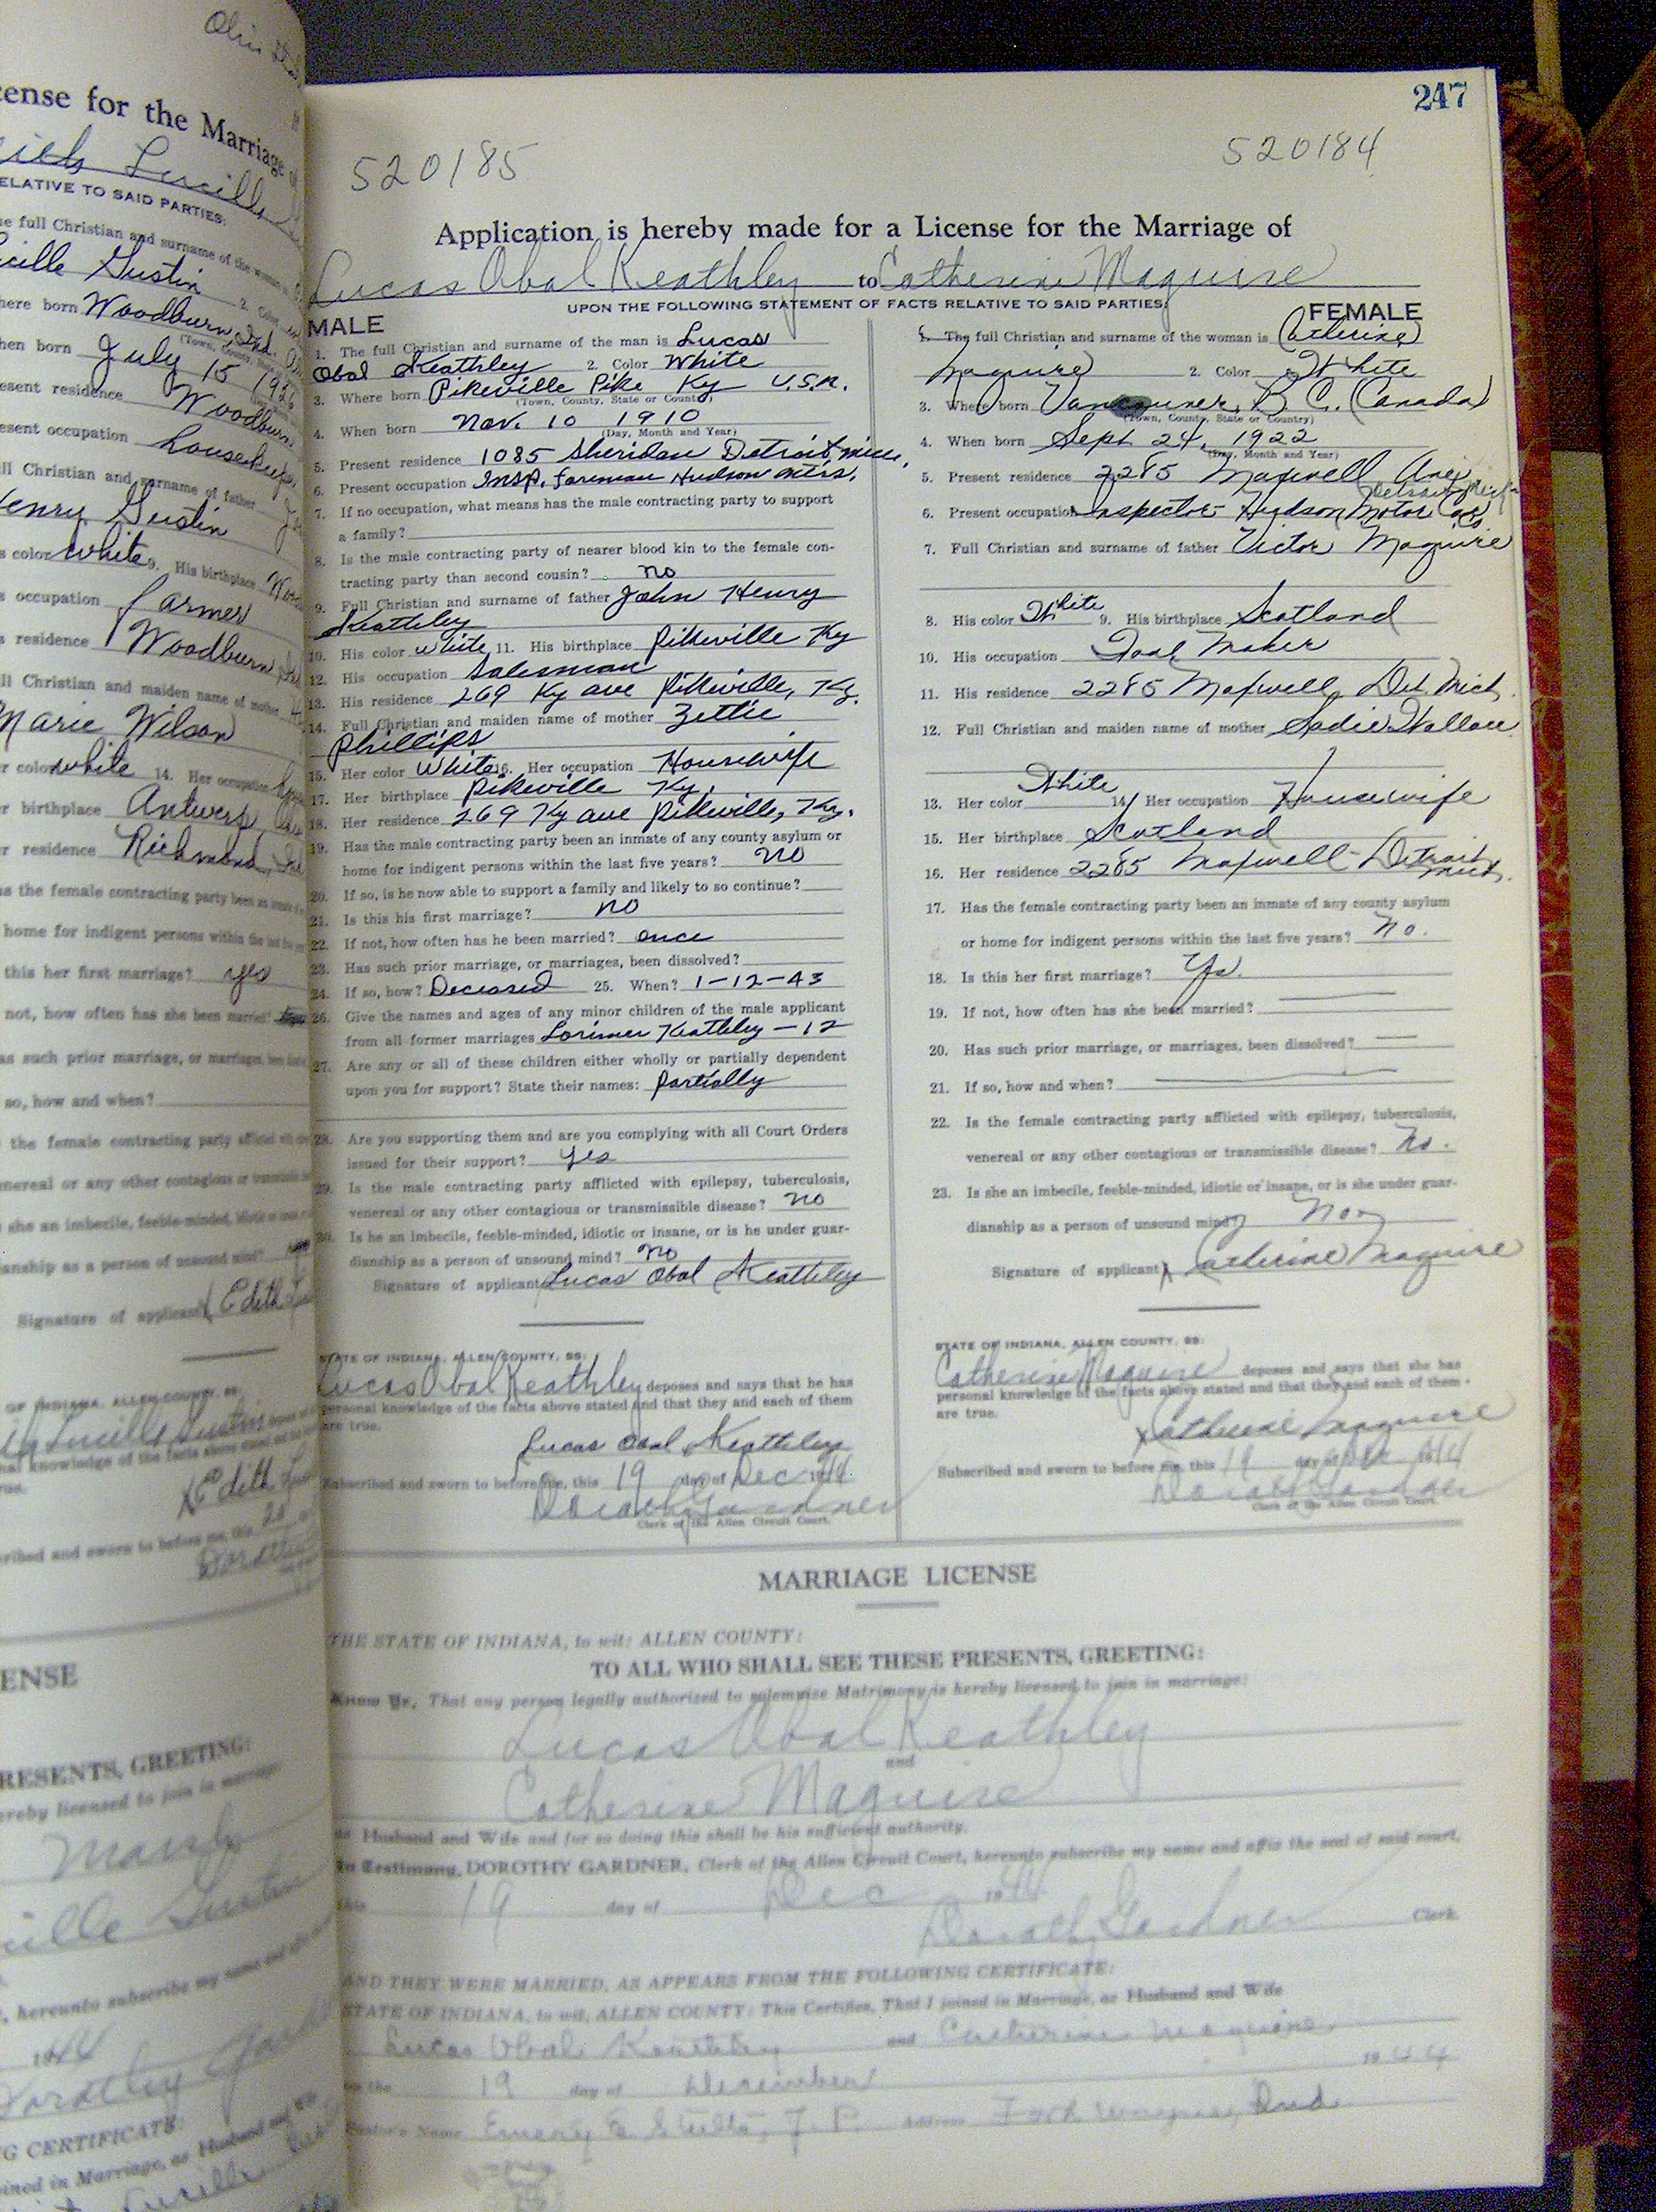 cense for the Marriage
Lucille
ELATIVE TO SAID PARTIES:
e full Christian and surname of the woman is
cille Gustin 2. Color
here born Woodburn, Ind.
(Town, County,
hen born July 15 1926
esent residence Woodburn
esent occupation housekeeper
ll Christian and surname of father
Henry Gustin
s color white 9. His birthplace
s occupation farmer
s residence Woodburn
ll Christian and maiden name of mother
Marie Wilson
r color white 14. Her occupation
r birthplace Antwerp
r residence Richmond
as the female contracting party been an
home for indigent persons within the last
this her first marriage? yes
not, how often has she been married?
as such prior marriage, or marriages, been
so, how and when?
the female contracting party afflicted
nereal or any other contagious or
she an imbecile, feeble-minded, idiotic
ianship as a person of unsound mind?
Signature of applicant Edith
OF INDIANA, ALLEN COUNTY,
Lucille Gustin
Edith
ribed and sworn to before me, this
ENSE
RESENTS, GREETING:
ereby licensed to join in marriage
Marsh
cille Gustin
, hereunto subscribe my name
1944
Dorothy
G CERTIFICATE:
oined in Marriage, as Husband and Wife
Lucille
247
520185 520184
Application is hereby made for a License for the Marriage of
Lucas Obal Keathley to Catherine Maguire
UPON THE FOLLOWING STATEMENT OF FACTS RELATIVE TO SAID PARTIES:
MALE
1. The full Christian and surname of the man is Lucas
Obal Keathley 2. Color White
3. Where born Pikeville Pike Ky U.S.A.
(Town, County, State or County)
4. When born Nov. 10 1910
(Day, Month and Year)
5. Present residence 1085 Sheridan Detroit, Mich.
6. Present occupation Insp. Foreman Hudson Mtrs.
7. If no occupation, what means has the male contracting party to support
a family?
8. Is the male contracting party of nearer blood kin to the female con-
tracting party than second cousin? no
9. Full Christian and surname of father John Henry
Keathley
10. His color White 11. His birthplace Pikeville Ky
12. His occupation Salesman
13. His residence 269 Ky ave Pikeville, Ky.
14. Full Christian and maiden name of mother Zettie
Phillips
15. Her color White 16. Her occupation Housewife
17. Her birthplace Pikeville Ky.
18. Her residence 269 Ky ave Pikeville, Ky.
19. Has the male contracting party been an inmate of any county asylum or
home for indigent persons within the last five years? no
20. If so, is he now able to support a family and likely to so continue?
21. Is this his first marriage? no
22. If not, how often has he been married? once
23. Has such prior marriage, or marriages, been dissolved?
24. If so, how? Deceased 25. When? 1-12-43
26. Give the names and ages of any minor children of the male applicant
from all former marriages Lorimer Keathley - 12
27. Are any or all of these children either wholly or partially dependent
upon you for support? State their names: partially
28. Are you supporting them and are you complying with all Court Orders
issued for their support? yes
29. Is the male contracting party afflicted with epilepsy, tuberculosis,
venereal or any other contagious or transmissible disease? no
30. Is he an imbecile, feeble-minded, idiotic or insane, or is he under guar-
dianship as a person of unsound mind? no
Signature of applicant Lucas Obal Keathley
STATE OF INDIANA, ALLEN COUNTY, SS:
Lucas Obal Keathley deposes and says that he has
personal knowledge of the facts above stated and that they and each of them
are true.
Lucas Obal Keathley
Subscribed and sworn to before me, this 19 day of Dec 1944
Dorothy Gardner
Clerk of the Allen Circuit Court.
FEMALE
1. The full Christian and surname of the woman is Catherine
Maguire 2. Color White
3. Where born Vancouver, B C. (Canada)
(Town, County, State or Country)
4. When born Sept 24, 1922
(Day, Month and Year)
5. Present residence 2285 Maxwell Ave.
Detroit, Mich
6. Present occupation Inspector Hudson Motor Co.
7. Full Christian and surname of father Victor Maguire
8. His color White 9. His birthplace Scotland
10. His occupation Tool Maker
11. His residence 2285 Maxwell, Det. Mich.
12. Full Christian and maiden name of mother Sadie Wallace
13. Her color White 14. Her occupation Housewife
15. Her birthplace Scotland
16. Her residence 2285 Maxwell - Detroit Mich.
17. Has the female contracting party been an inmate of any county asylum
or home for indigent persons within the last five years? No.
18. Is this her first marriage? Yes.
19. If not, how often has she been married?
20. Has such prior marriage, or marriages, been dissolved?
21. If so, how and when?
22. Is the female contracting party afflicted with epilepsy, tuberculosis,
venereal or any other contagious or transmissible disease? No.
23. Is she an imbecile, feeble-minded, idiotic or insane, or is she under guar-
dianship as a person of unsound mind? No
Signature of applicant Catherine Maguire
STATE OF INDIANA, ALLEN COUNTY, SS:
Catherine Maguire deposes and says that she has
personal knowledge of the facts above stated and that they and each of them
are true.
Catherine Maguire
Subscribed and sworn to before me, this 19 day of Dec 1944
Dorothy Gardner
Clerk of the Allen Circuit Court.
MARRIAGE LICENSE
THE STATE OF INDIANA, to wit: ALLEN COUNTY:
TO ALL WHO SHALL SEE THESE PRESENTS, GREETING:
Know Ye, That any person legally authorized to solemnize Matrimony is hereby licensed to join in marriage:
Lucas Obal Keathley
and
Catherine Maguire
as Husband and Wife and for so doing this shall be his sufficient authority.
In Testimony, DOROTHY GARDNER, Clerk of the Allen Circuit Court, hereunto subscribe my name and affix the seal of said court,
this 19 day of Dec 1944
Dorothy Gardner Clerk
AND THEY WERE MARRIED, AS APPEARS FROM THE FOLLOWING CERTIFICATE:
STATE OF INDIANA, to wit, ALLEN COUNTY: This Certifies, That I joined in Marriage, as Husband and Wife
Lucas Obal Keathley and Catherine Maguire
on the 19 day of December 1944
Pastor's Name Emery E. Stults, J. P. Address Fort Wayne, Ind.